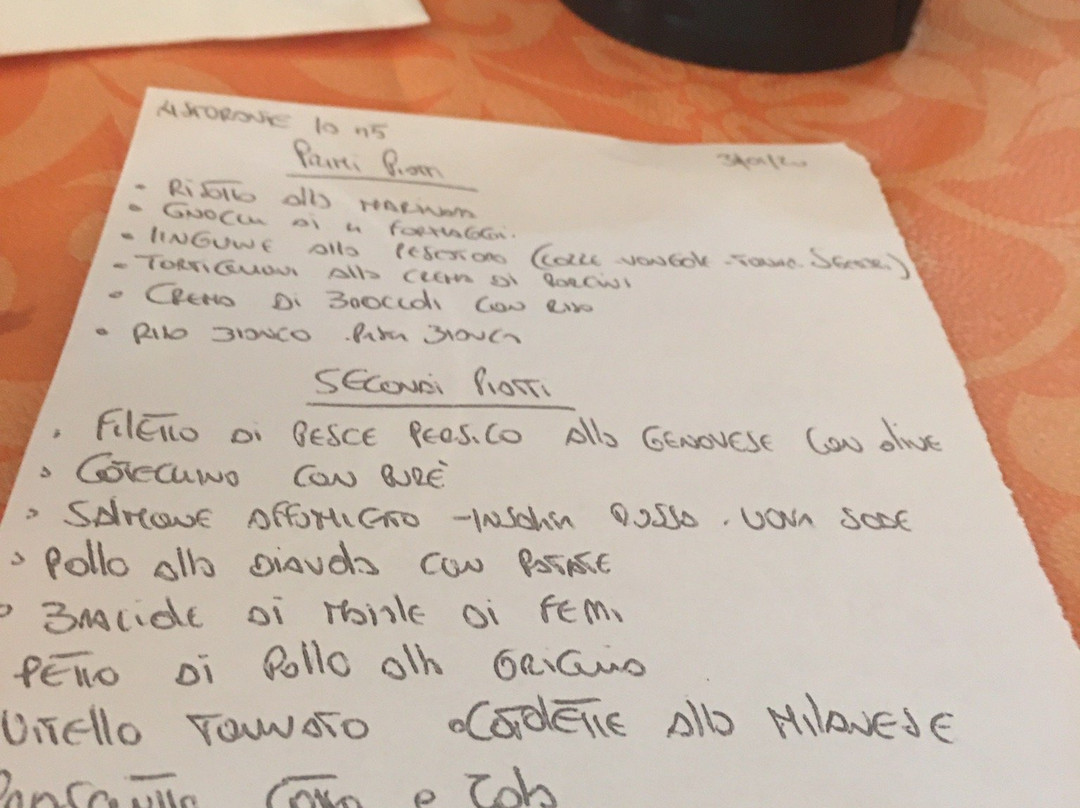 RISTORANTE 10 n5
31/01/20
Primi Piatti
• RISOTTO alla MARINARA
• GNOCCHI DI 4 FORMAGGI.
• LINGUINE alla PESCATORA (COZZE VONGOLE
- TORTIGLIONI alla CREMA DI PORCINI
• CREMA DI BROCCOLI CON RISO
• RISO BIANCO . PASTA BIANCA
SECONDI PIATTI
• FILETTO DI PESCE PERSICO alla GENOVESE CON olive
• COTECHINO CON PURÈ
• SALMONE AFFUMICATO - INSALATA RUSSA . UOVA SODE
• Pollo alla DIAVOLA CON PATATE
• BRACIOLE DI MAIALE AI FERRI
PETTO DI Pollo alla GRIGLIA
VITELLO TONNATO • COTOLETTE alla MILANESE
COTTO e